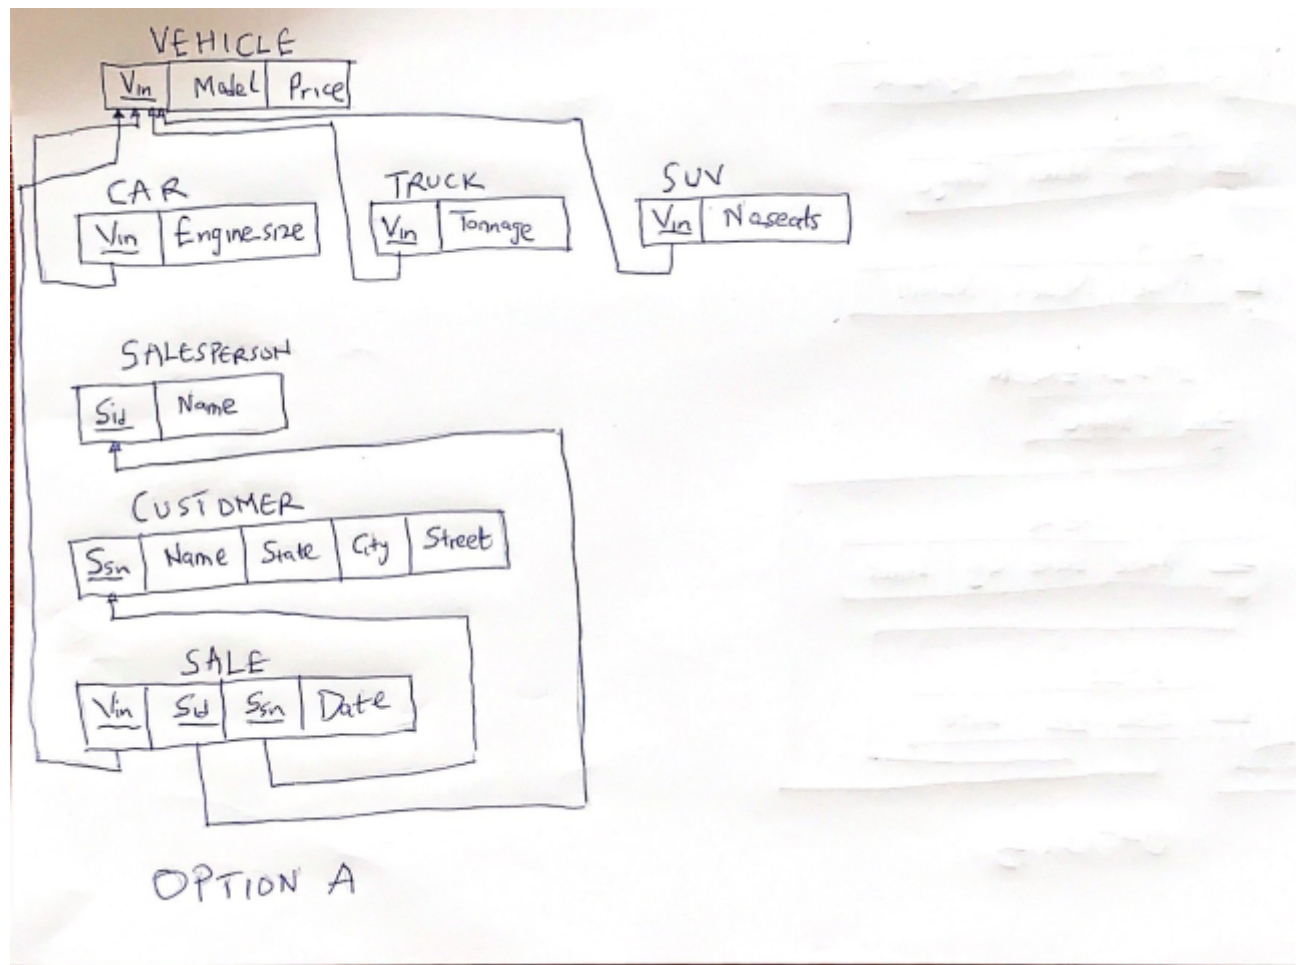 VEHICLE
Vin Model Price
CAR TRUCK SUV
Vin Engine_size Vin Tonnage Vin Noseats
SALESPERSON
Sid Name
CUSTOMER
Ssn Name State City Street
SALE
Vin Sid Ssn Date
OPTION A